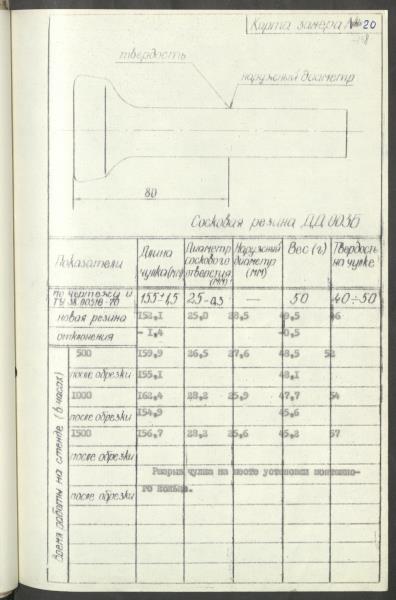 Карта замера № 20
твердость
наружный диаметр
80
Сосковая резина ДД.003Б
Показатели | Длина чулка(мм) | Диаметр соскового отверстия (мм) | Наружный диаметр (мм) | Вес (г) | Твердость на чулке
по чертежу и ТУ | 155±1,5 | 25-0,3 | — | 50 | 40÷50
новая резина | 152,1 | 25,0 | 28,5 | 49,5 | 46
отклонения | - 1,4 | -0,5
Время работы на стенде (в часах)
500 | 159,9 | 26,5 | 27,6 | 48,5 | 52
после обрезки | 155,1 | 48,1
1000 | 162,4 | 28,2 | 25,9 | 47,7 | 54
после обрезки | 154,9 | 45,6
1500 | 156,7 | 28,2 | 25,6 | 45,2 | 57
после обрезки
Разрыв чулка на месте установки монтажно-
после обрезки | го кольца.